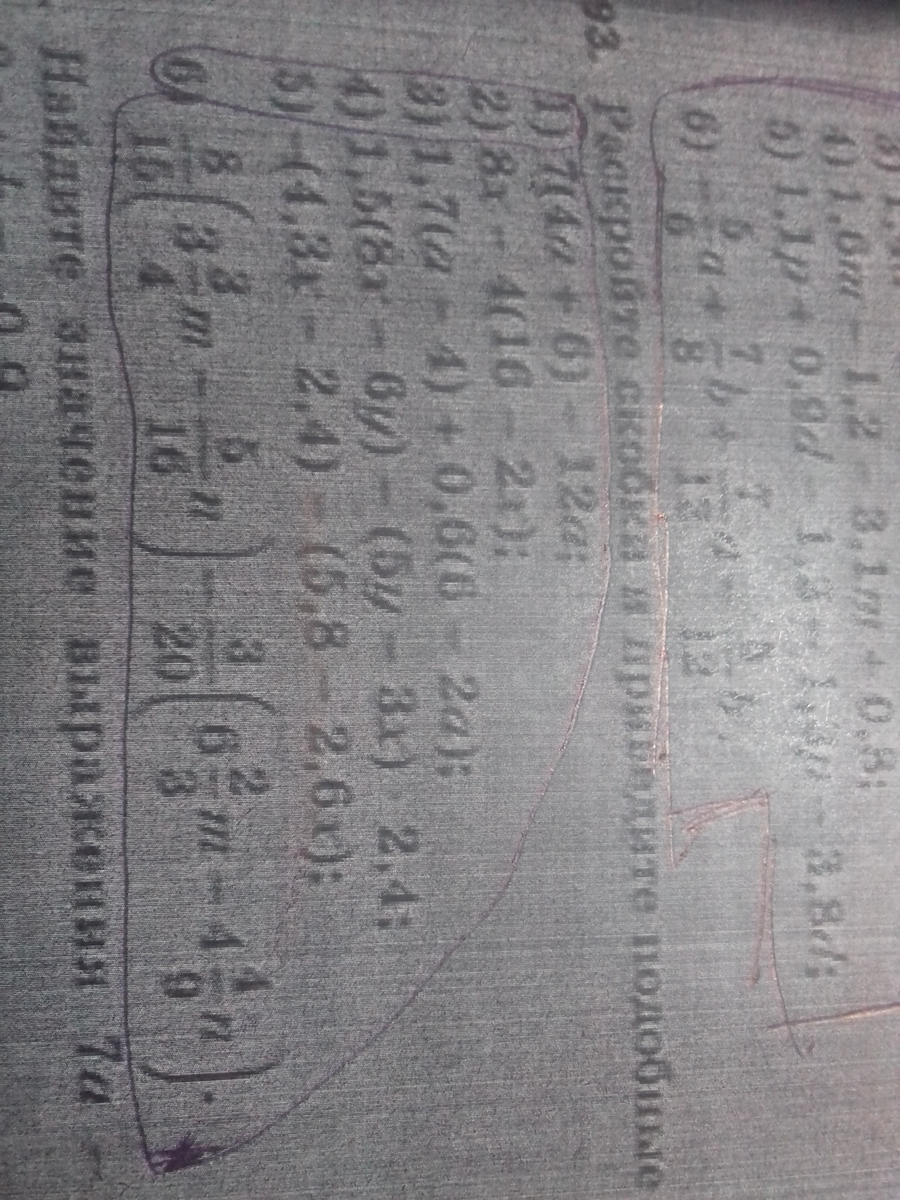 4) 1,6m − 1,2 − 3,1m + 0,8;
− 2,8d;
6) −5/6 a + 7/8 b +
93. Раскройте скобки и приведите подобные
1) 7(4a + 6) − 12a;
2) 8x − 4(16 − 2x);
3) 1,7(a − 4) + 0,6(6 − 2a);
4) 1,5(8x − 6y) − (5y − 3x) 2,4;
5) −(4,3x − 2,4) − (5,8 − 2,6x);
6) 8/15 (3 3/4 m − 5/16 n) − 3/20 (6 2/3 m − 4 4/9 n).
Найдите значение выражения 7a −